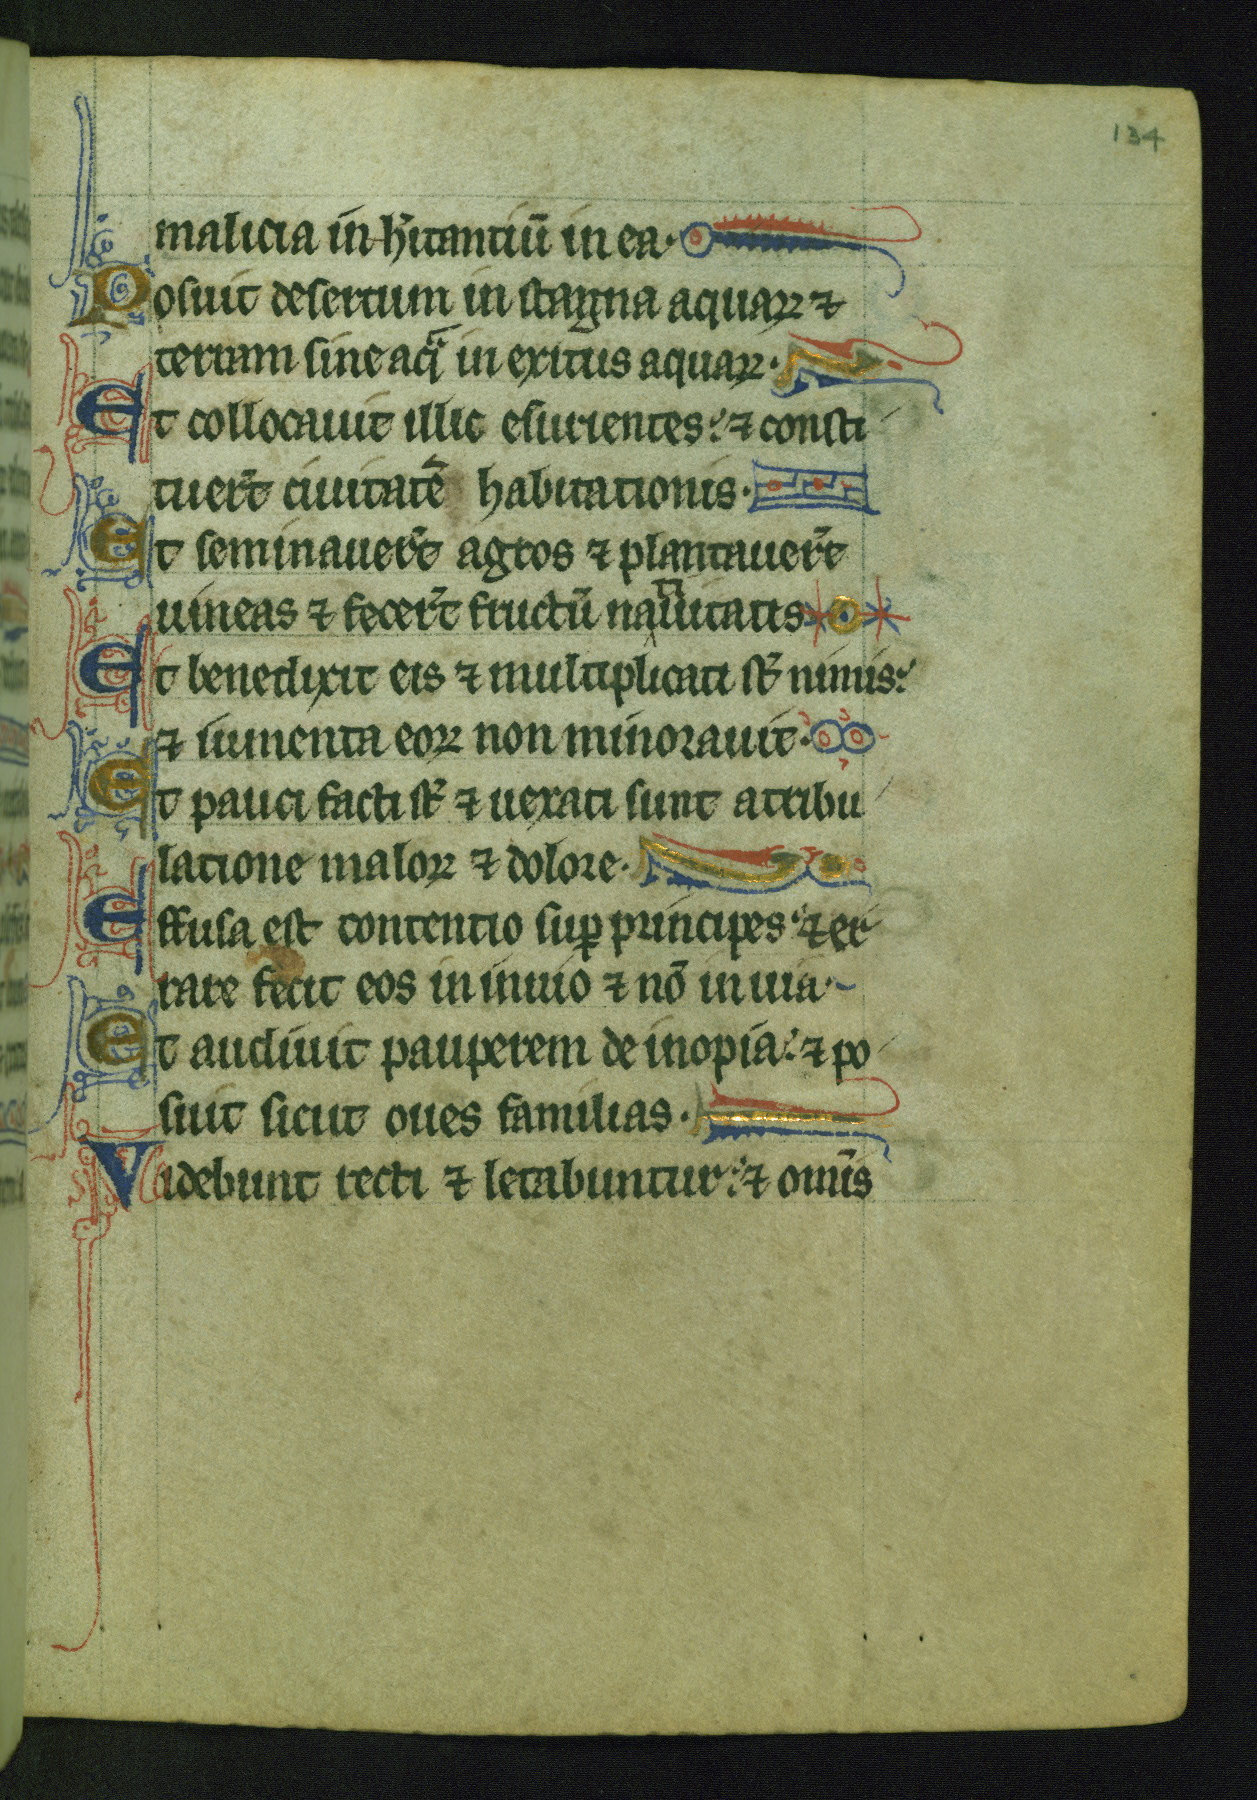 134
malicia in hitantiū in ea·
Posuit desertum in stagna aquaꝝ ⁊
terram sine aq̄ in exitus aquaꝝ·
Et collocauit illic esurientes: ⁊ consti
tuer̄t ciuitatē habitationis·
Et seminauer̄t agros ⁊ plantauer̄t
uineas ⁊ fecer̄t fructū natiuitatis
Et benedixit eis ⁊ multiplicati st̄ nimis:
⁊ iumenta eoꝝ non minorauit·
Et pauci facti st̄ ⁊ uexati sunt a tribu
latione maloꝝ ⁊ dolore·
Effusa est contentio suꝑ principes: ⁊ er
rare fecit eos in inuio ⁊ nō in uia·
Et audiuit pauperem de inopia: ⁊ po
suit sicut oues familias·
Videbunt recti ⁊ letabuntur: ⁊ om̄is